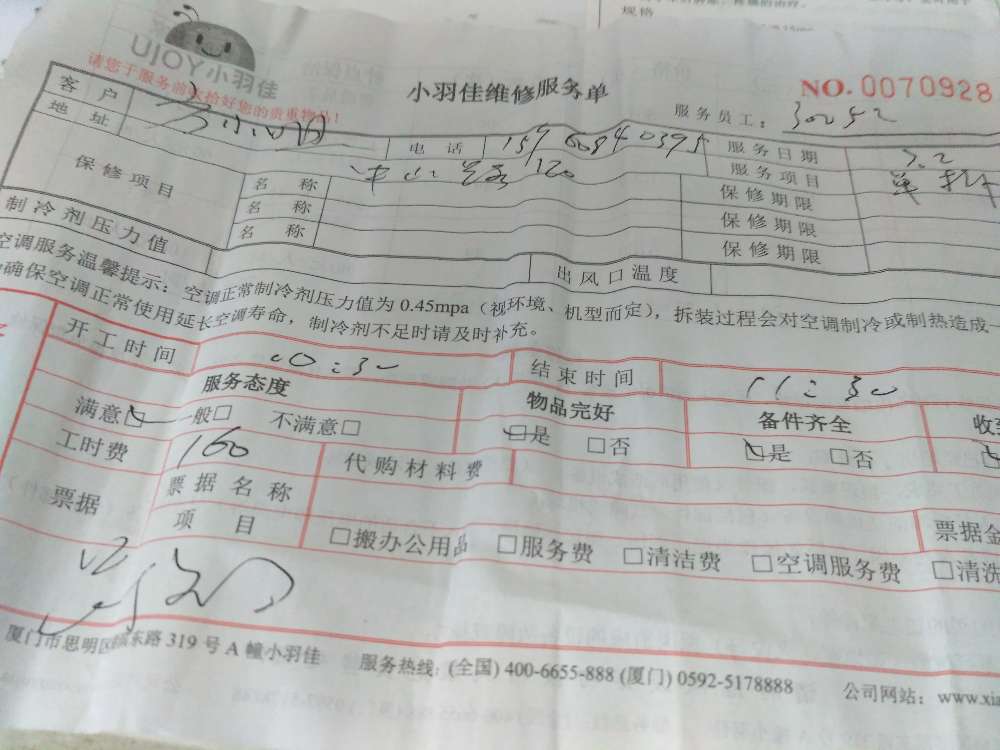 规格
UJOY小羽佳
请您于服务前收拾好您的贵重物品!
小羽佳维修服务单
NO. 0070928
服务员工: 30252
客户 电话 服务日期 3.2
地址 服务项目
保修项目 名称 120 保修期限
名称 保修期限
名称 保修期限
制冷剂压力值 出风口温度
空调服务温馨提示: 空调正常制冷剂压力值为 0.45mpa (视环境、机型而定), 拆装过程会对空调制冷或制热造成一
确保空调正常使用延长空调寿命, 制冷剂不足时请及时补充。
开工时间 10:30 结束时间 11:30
服务态度 物品完好 备件齐全
满意☑ 一般□ 不满意□ ☑是 □否 ☑是 □否
工时费 160 代购材料费
票据 票据名称 票据金
项目 □搬办公用品 □服务费 □清洁费 □空调服务费 □清洗
厦门市思明区 东路 319 号 A 幢小羽佳 服务热线: (全国) 400-6655-888 (厦门) 0592-5178888 公司网站: www.xia